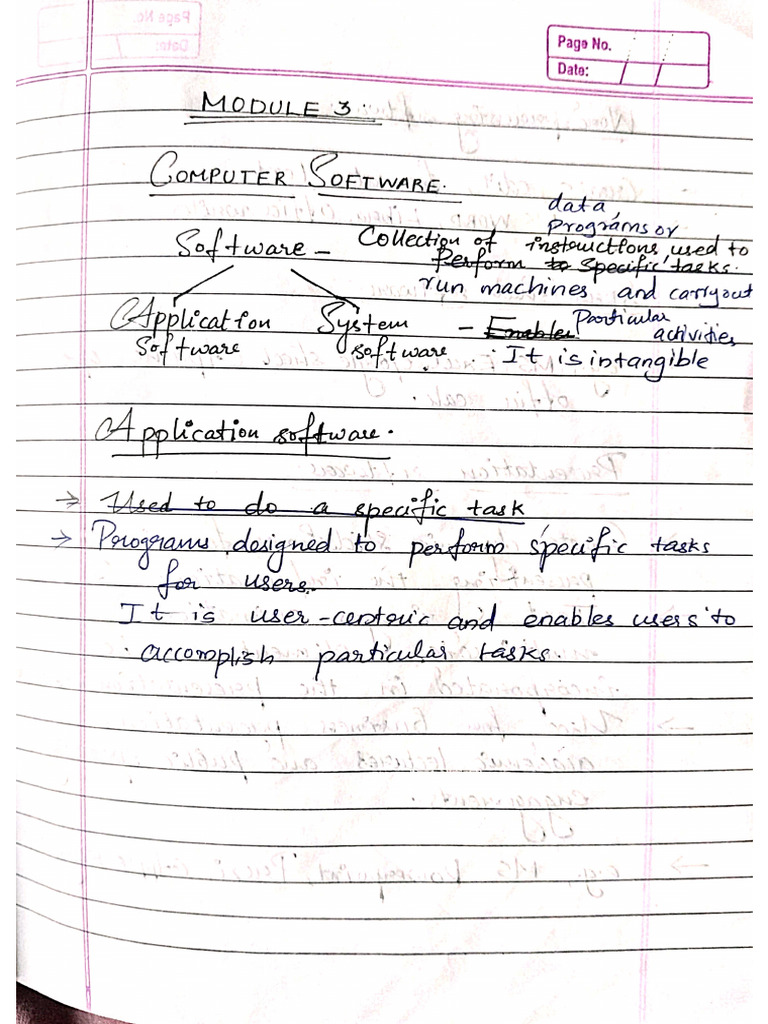 Page No.
Date:
MODULE 3.
COMPUTER SOFTWARE.
data,
programs or
Software - Collection of instructions used to
Perform to specific tasks.
run machines and carryout
Application System - Enables Particular activities
Software software. It is intangible
Application software.
→ Used to do a specific task
→ Programs designed to perform specific tasks
for users.
It is user-centric and enables users to
accomplish particular tasks.